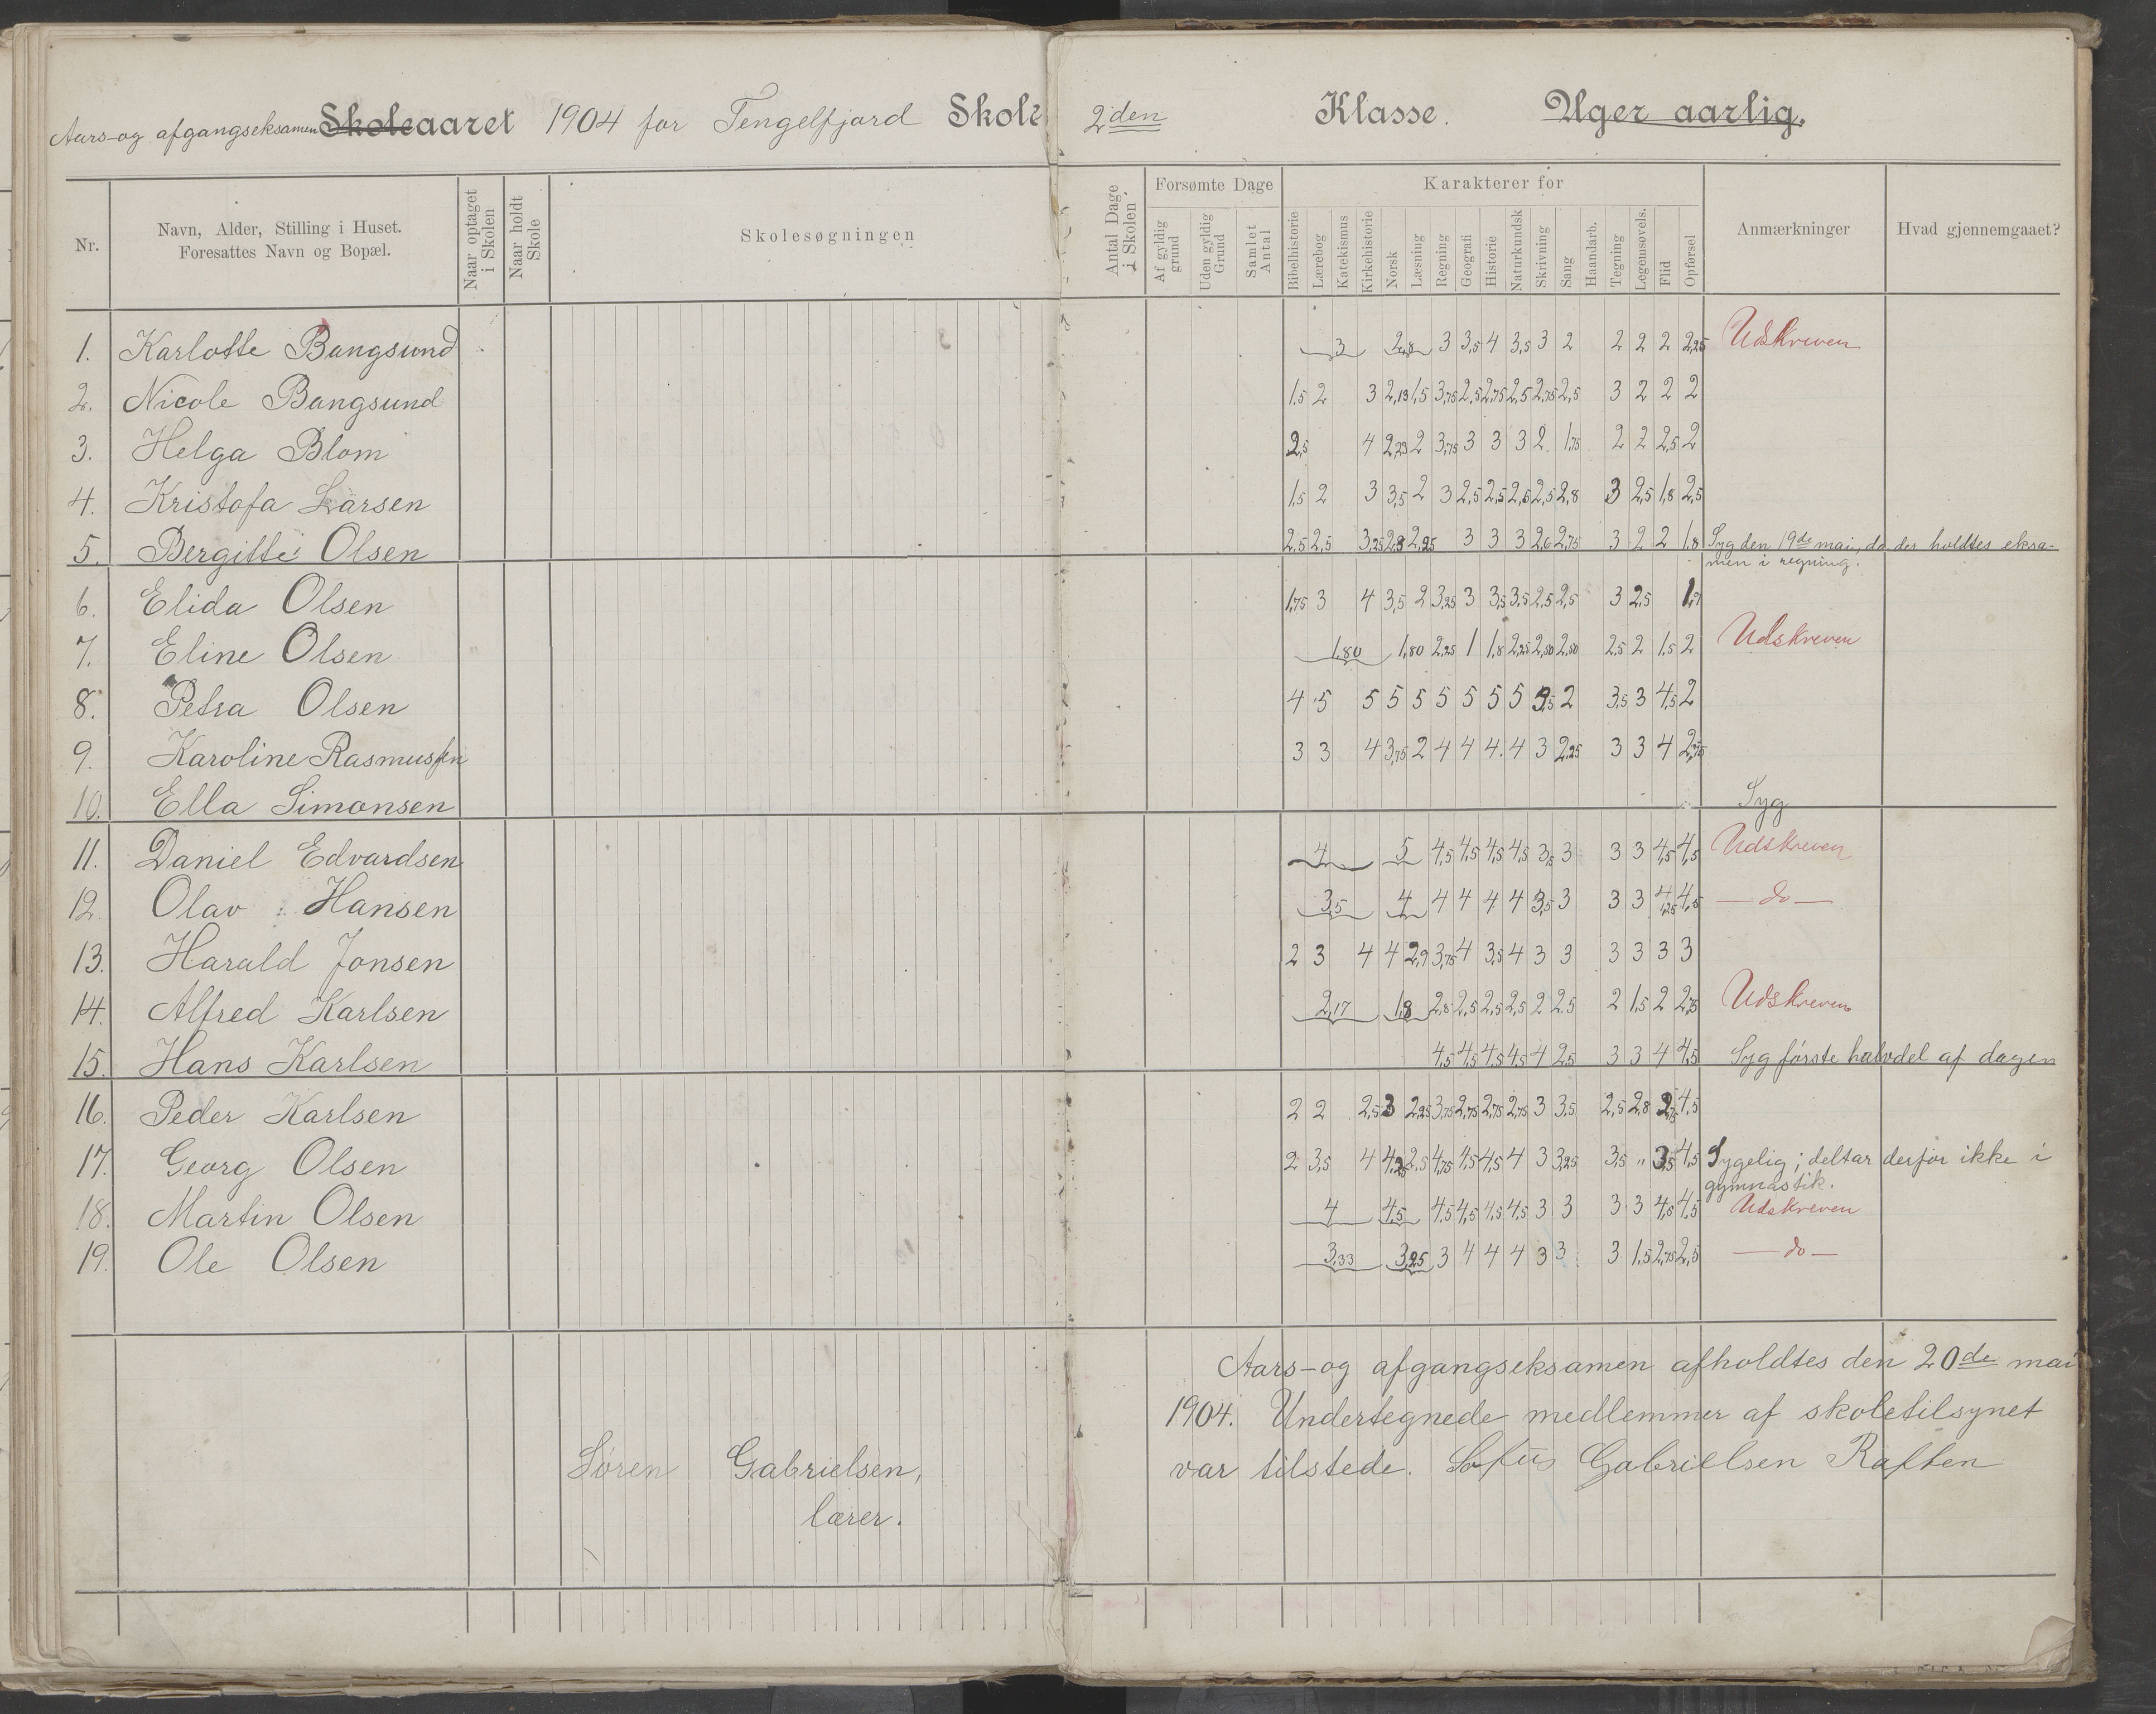 Aars-og afgangseksamen Skoleaaret 1904 for Tengelfjord Skole 2den Klasse. Uger aarlig.
Nr. Navn, Alder, Stilling i Huset. Foresattes Navn og Bopæl. Naar optaget i Skolen Naar holdt Skole Skolesøgningen Antal Dage i Skolen Forsømte Dage Af gyldig grund Uden gyldig Grund Samlet Antal Karakterer for Bibelhistorie Lærebog Katekismus Kirkehistorie Norsk Læsning Regning Geografi Historie Naturkundsk Skrivning Sang Haandarb. Tegning Legemsøvels. Flid Opførsel Anmærkninger Hvad gjennemgaaet?
1. Karlotte Bangsund 3 2,8 3 3,5 4 3,5 3 2 2 2 2 2,25 Udskreven
2. Nicole Bangsund 1,5 2 3 2,13 1,5 3,75 2,5 2,75 2,5 2,75 2,5 3 2 2 2
3. Helga Blom 2,5 4 2,23 2 3,75 3 3 3 2 1,75 2 2 2,5 2
4. Kristofa Larsen 1,5 2 3 3,5 2 3 2,5 2,5 2,6 2,5 2,8 3 2,5 1,8 2,5
5. Bergitte Olsen 2,5 2,5 3,25 2,8 2,25 3 3 3 2,6 2,75 3 2 2 1,8 Syg den 19de mai, da der holdtes eksa-
men i regning.
6. Elida Olsen 1,75 3 4 3,5 2 3,25 3 3,5 3,5 2,5 2,5 3 2,5 1,7
7. Eline Olsen 1,80 1,80 2,25 1 1,8 2,25 2,50 2,50 2,5 2 1,5 2 Udskreven
8. Petra Olsen 4 5 5 5 5 5 5 5 5 3,5 2 3,5 3 4,5 2
9. Karoline Rasmussen 3 3 4 3,75 2 4 4 4 4 3 2,25 3 3 4 2,75
10. Ella Simonsen Syg
11. Daniel Edvardsen 4 5 4,5 4,5 4,5 4,5 3,5 3 3 3 4,5 4,5 Udskreven
12. Olav Hansen 3,5 4 4 4 4 4 3,5 3 3 3 4,25 4,5 — do —
13. Harald Jonsen 2 3 4 4 2,9 3,75 4 3,5 4 3 3 3 3 3 3
14. Alfred Karlsen 2,17 1,8 2,8 2,5 2,5 2,5 2 2,5 2 1,5 2 2,75 Udskreven
15. Hans Karlsen 4,5 4,5 4,5 4,5 4 2,5 3 3 4 4,5 Syg første halvdel af dagen
16. Peder Karlsen 2 2 2,5 3 2,25 3,75 2,75 2,75 2,75 3 3,5 2,5 2,8 2,75 4,5
17. Georg Olsen 2 3,5 4 4,25 2,5 4,75 4,5 4,5 4 3 3,25 3,5 " 3,5 4,5 Sygelig; deltar derfor ikke i
gymnastik.
18. Martin Olsen 4 4,5 4,5 4,5 4,5 4,5 3 3 3 3 4,5 4,5 Udskreven
19. Ole Olsen 3,33 3,25 3 4 4 4 3 3 3 1,5 2,75 2,5 — do —
Søren Gabrielsen,
lærer.
Aars-og afgangseksamen afholdtes den 20de mai
1904. Undertegnede medlemmer af skoletilsynet
var tilstede. Sofus Gabrielsen Raften